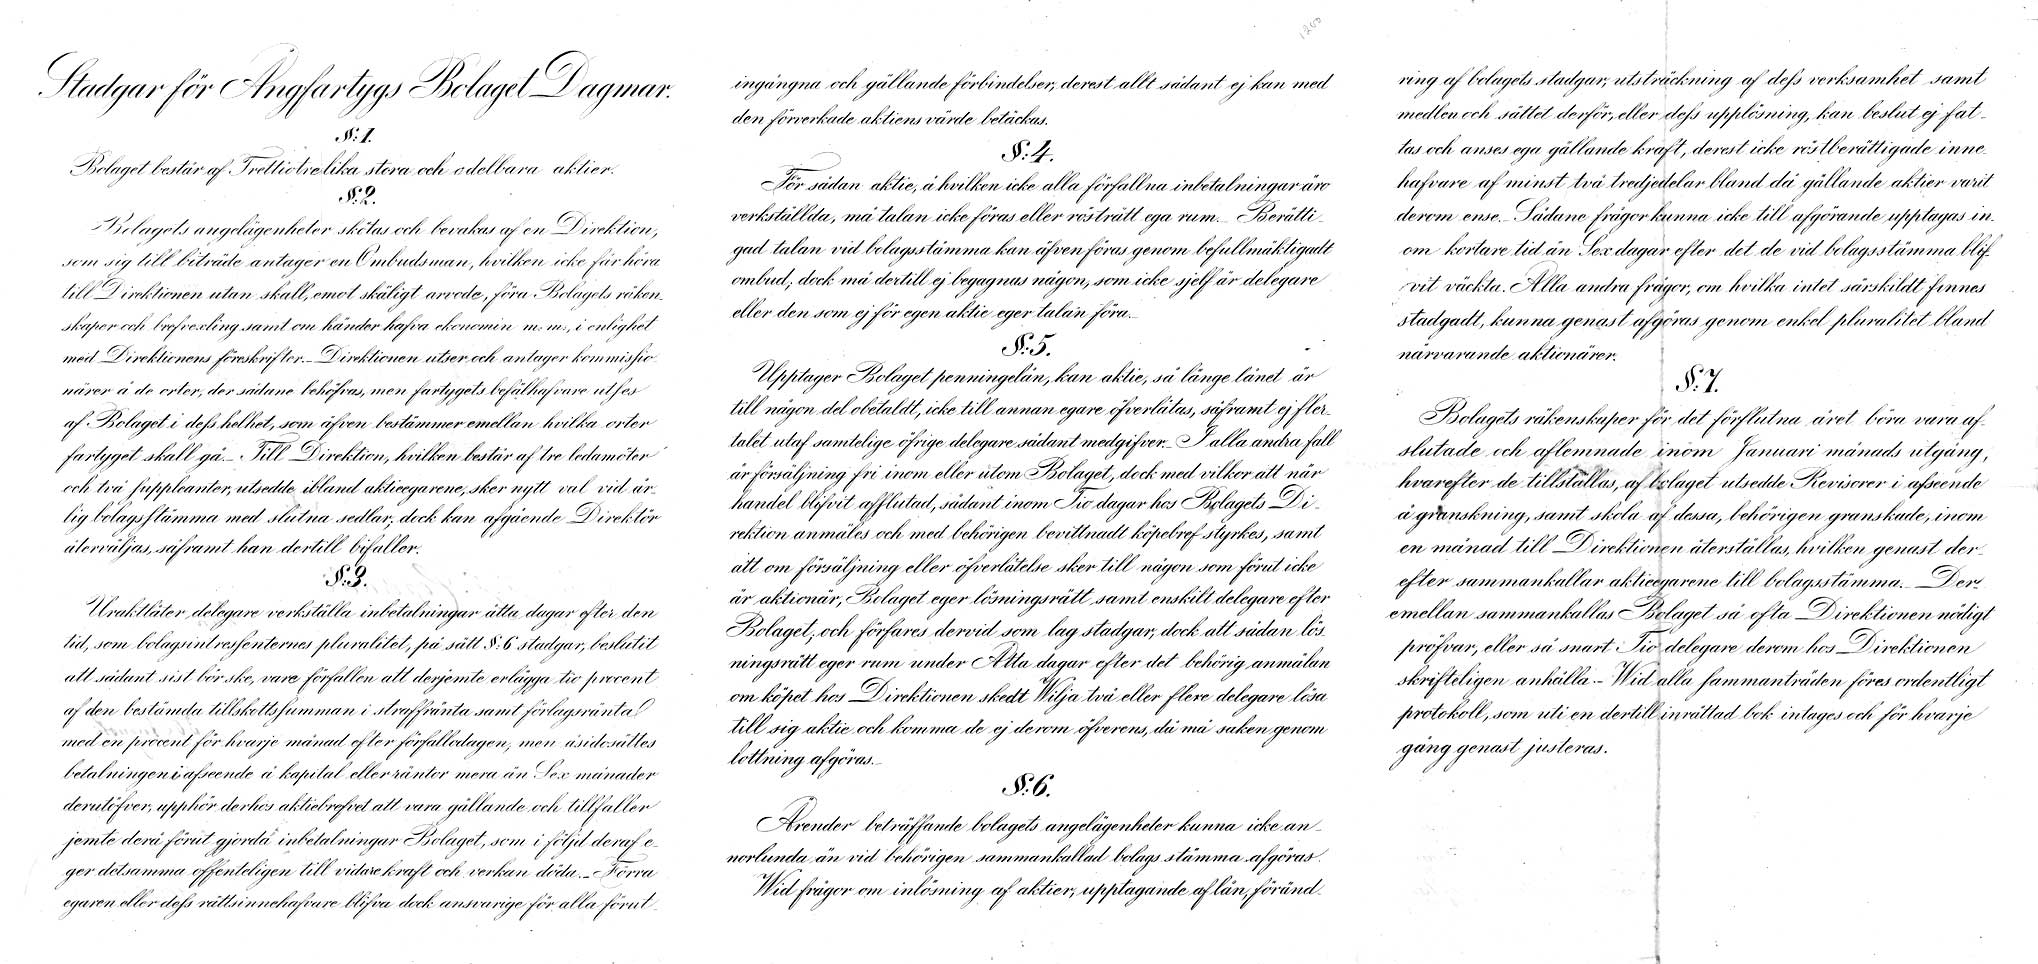 Stadgar för Ångfartygs Bolaget Dagmar.
§: 1.
Bolaget består af Trettiotre lika stora och odelbara aktier.
§: 2.
Bolagets angelägenheter skötas och bevakas af en Direktion,
som sig till biträde antager en Ombudsman, hvilken icke får höra
till Direktionen utan skall, emot skäligt arvode, föra Bolagets räken-
skaper och brefvexling samt om händer hafva ekonomin m. m., i enlighet
med Direktionens föreskrifter. Direktionen utser och antager kommissio
närer å de orter, der sådane behöfvas, men fartygets befälhafvare utses
af Bolaget i dess helhet, som äfven bestämmer emellan hvilka orter
fartyget skall gå. Till Direktion, hvilken består af tre ledamöter
och två suppleanter, utsedde ibland aktieegarene, sker nytt val vid år-
lig bolagsstämma med slutna sedlar, dock kan afgående Direktör
återväljas, såframt han dertill bifaller.
§: 3.
Uraktlåter delegare verkställa inbetalningar åtta dagar efter den
tid, som bolagsintressenternes pluralitet, på sätt §: 6 stadgar, beslutit
att sådant sist bör ske, vare förfallen att derjemte erlägga tio procent
af den bestämda tillskottssumman i straffränta samt förlagsränta
med en procent för hvarje månad efter förfallodagen; men åsidosättes
betalningen i afseende å kapital eller räntor mera än Sex månader
derutöfver, upphör derhos aktiebrefvet att vara gällande och tillfaller
jemte derå förut gjorda inbetalningar Bolaget, som i följd deraf e-
ger detsamma offenteligen till vidare kraft och verkan döda. Förra
egaren eller dess rättsinnehafvare blifva dock ansvarige för alla förut
ingångna och gällande förbindelser, derest allt sådant ej kan med
den förverkade aktiens värde betäckas.
§: 4.
För sådan aktie, å hvilken icke alla förfallna inbetalningar äro
verkställda, må talan icke föras eller rösträtt ega rum. Berätti-
gad talan vid bolagsstämma kan äfven föras genom befullmäktigadt
ombud, dock må dertill ej begagnas någon, som icke sjelf är delegare
eller den som ej för egen aktie eger talan föra.
§: 5.
Upptager Bolaget penningelån, kan aktie, så länge lånet är
till någon del obetaldt, icke till annan egare öfverlåtas, såframt ej fler-
talet utaf samtelige öfrige delegare sådant medgifver. I alla andra fall
är försäljning fri inom eller utom Bolaget, dock med vilkor att när
handel blifvit afslutad, sådant inom Tio dagar hos Bolagets Di-
rektion anmäles och med behörigen bevittnadt köpebref styrkes, samt
att om försäljning eller öfverlåtelse sker till någon som förut icke
är aktionär, Bolaget eger lösningsrätt samt enskilt delegare efter
Bolaget, och förfares dervid som lag stadgar, dock att sådan lös
ningsrätt eger rum under Åtta dagar efter det behörig anmälan
om köpet hos Direktionen skedt Wilja två eller flere delegare lösa
till sig aktie och komma de ej derom öfverens, då må saken genom
lottning afgöras.
§: 6.
Ärender beträffande bolagets angelägenheter kunna icke an-
norlunda än vid behörigen sammankallad bolags stämma afgöras.
Wid frågor om inlösning af aktier, upptagande af lån, föränd-
ring af bolagets stadgar, utsträckning af dess verksamhet samt
medlen och sättet derför, eller dess upplösning, kan beslut ej fat-
tas och anses ega gällande kraft, derest icke röstberättigade inne-
hafvare af minst två tredjedelar bland då gällande aktier varit
derom ense. Sådane frågor kunna icke till afgörande upptagas in-
om kortare tid än Sex dagar efter det de vid bolagsstämma blif-
vit väckta. Alla andra frågor, om hvilka intet särskildt finnes
stadgadt, kunna genast afgöras genom enkel pluralitet bland
närvarande aktionärer.
§: 7.
Bolagets räkenskaper för det förflutna året böra vara af-
slutade och aflemnade inom Januari månads utgång,
hvarefter de tillställas, af bolaget utsedde Revisorer i afseende
å granskning, samt skola af dessa, behörigen granskade, inom
en månad till Direktionen återställas, hvilken genast der-
efter sammankallar aktieegarene till bolagsstämma. Der-
emellan sammankallas Bolaget så ofta Direktionen nödigt
pröfvar, eller så snart Tio delegare derom hos Direktionen
skrifteligen anhålla. Wid alla sammanträden föres ordentligt
protokoll, som uti en dertill inrättad bok intages och för hvarje
gång genast justeras.